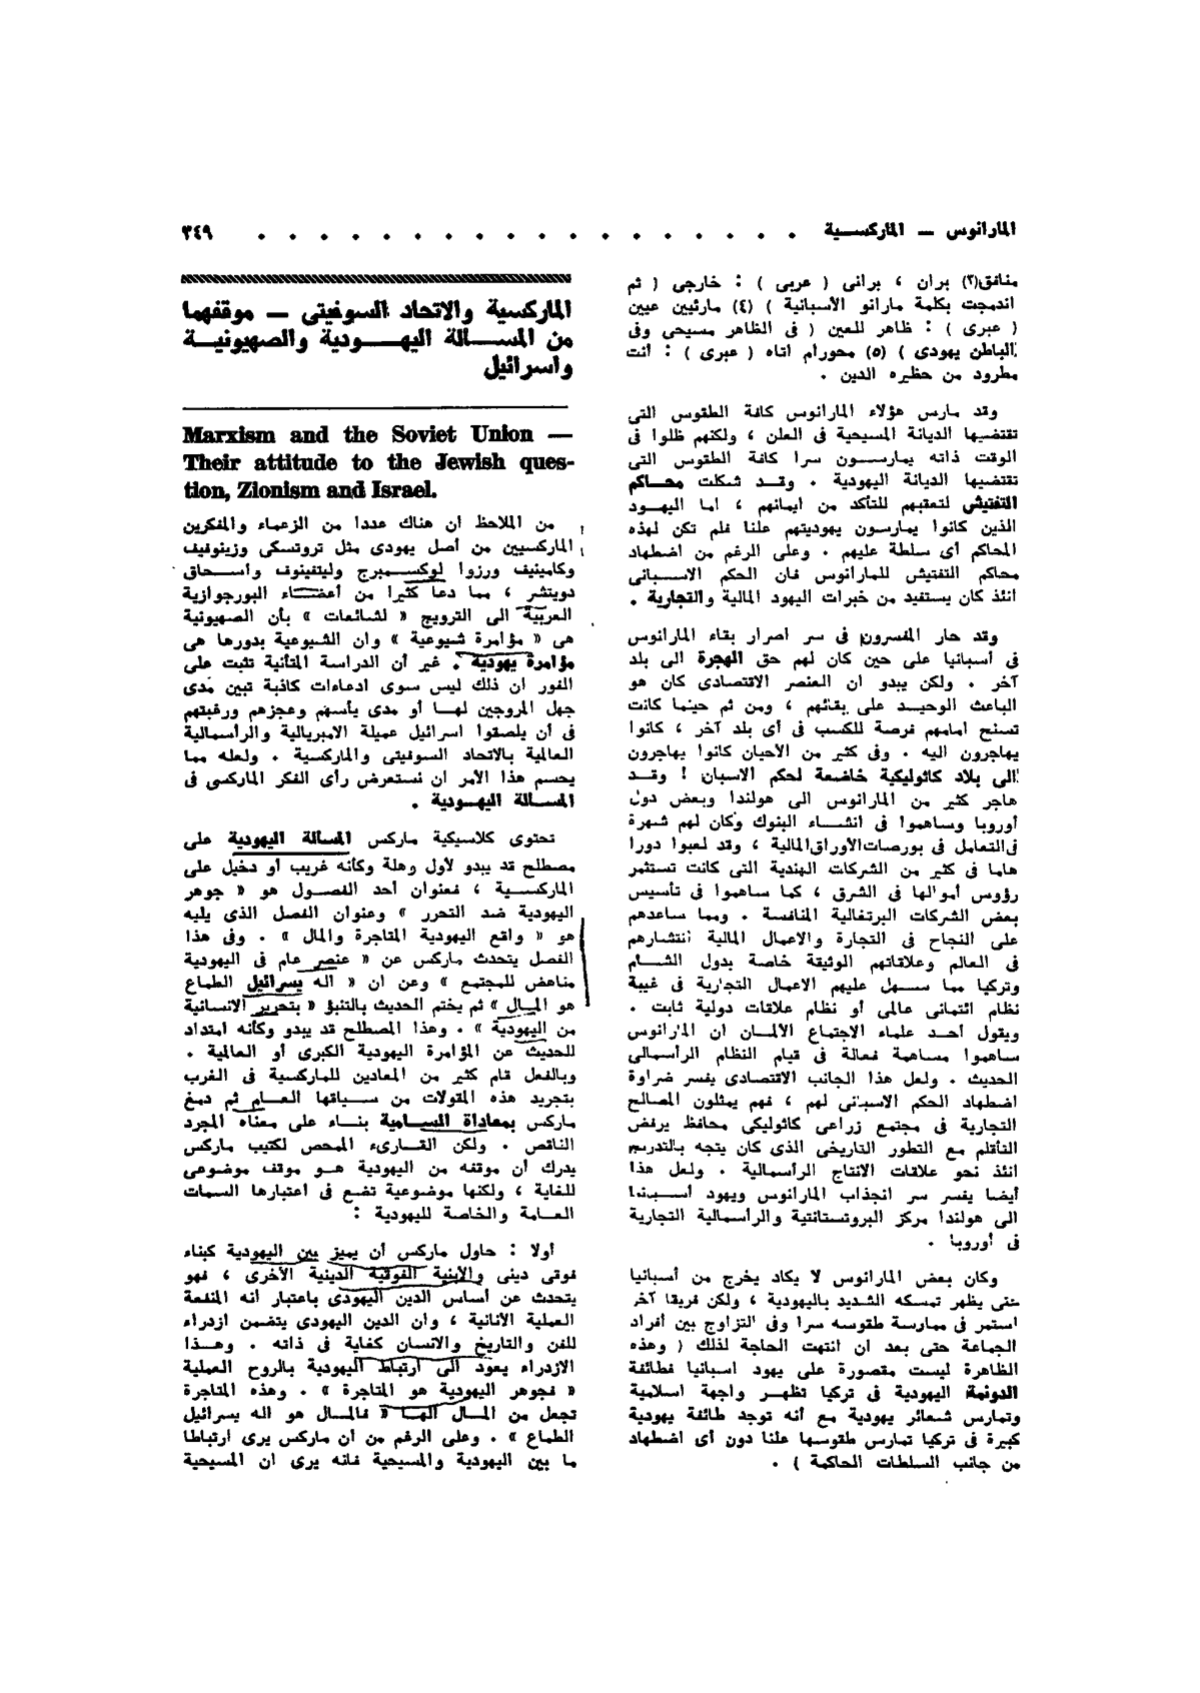 المارانوس — الماركسية . . . . . . . . . . . . . . . . . . ٣٤٩
منافق(٣) بران ، برانى ( عربى ) : خارجى ( ثم
اندمجت بكلمة مارانو الأسبانية ) (٤) مارئيين عيين
( عبرى ) : ظاهر للعين ( فى الظاهر مسيحى وفى
الباطن يهودى ) (٥) محورام اتاه ( عبرى ) : أنت
مطرود من حظيره الدين .
وقد مارس هؤلاء المارانوس كافة الطقوس التى
تقتضيها الديانة المسيحية فى العلن ، ولكنهم ظلوا فى
الوقت ذاته يمارســون سرا كافة الطقوس التى
تقتضيها الديانة اليهودية . وقــد شكلت محــاكم
التفتيش لتعقبهم للتأكد من ايمانهم ، اما اليهــود
الذين كانوا يمارسون يهوديتهم علنا فلم تكن لهذه
المحاكم أى سلطة عليهم . وعلى الرغم من اضطهاد
محاكم التفتيش للمارانوس فان الحكم الاســبانى
انئذ كان يستفيد من خبرات اليهود المالية والتجارية .
وقد حار المفسرون فى سر اصرار بقاء المارانوس
فى أسبانيا على حين كان لهم حق الهجرة الى بلد
آخر . ولكن يبدو ان العنصر الاقتصادى كان هو
الباعث الوحيــد على بقائهم ، ومن ثم حينما كانت
تسنح امامهم فرصة للكسب فى أى بلد آخر ، كانوا
يهاجرون اليه . وفى كثير من الأحيان كانوا يهاجرون
الى بلاد كاثوليكية خاضعة لحكم الاسبان ! وقــد
هاجر كثير من المارانوس الى هولندا وبعض دول
أوروبا وساهموا فى انشــاء البنوك وكان لهم شهرة
فى التعامل فى بورصات الأوراق المالية ، وقد لعبوا دورا
هاما فى كثير من الشركات الهندية التى كانت تستثمر
رؤوس أموالها فى الشرق ، كما ساهموا فى تأسيس
بعض الشركات البرتغالية المنافسة . ومما ساعدهم
على النجاح فى التجارة والاعمال المالية انتشارهم
فى العالم وعلاقاتهم الوثيقة خاصة بدول الشــام
وتركيا مما ســهل عليهم الاعمال التجارية فى غيبة
نظام ائتمانى عالمى أو نظام علاقات دولية ثابت .
ويقول أحــد علماء الاجتماع الألمــان ان المارانوس
ساهموا مساهمة فعالة فى قيام النظام الرأسمالى
الحديث . ولعل هذا الجانب الاقتصادى يفسر ضراوة
اضطهاد الحكم الاسبانى لهم ، فهم يمثلون المصالح
التجارية فى مجتمع زراعى كاثوليكى محافظ يرفض
التأقلم مع التطور التاريخى الذى كان يتجه بالتدريج
انئذ نحو علاقات الانتاج الرأسمالية . ولعل هذا
أيضا يفسر سر انجذاب المارانوس ويهود أســبانيا
الى هولندا مركز البروتستانتية والرأسمالية التجارية
فى أوروبا .
وكان بعض المارانوس لا يكاد يخرج من أسبانيا
حتى يظهر تمسكه الشديد باليهودية ، ولكن فريقا آخر
استمر فى ممارسة طقوسه سرا وفى التزاوج بين أفراد
الجماعة حتى بعد ان انتهت الحاجة لذلك ( وهذه
الظاهرة ليست مقصورة على يهود اسبانيا فطائفة
الدونمة اليهودية فى تركيا تظهــر واجهة اسلامية
وتمارس شعائر يهودية مع أنه توجد طائفة يهودية
كبيرة فى تركيا تمارس طقوسها علنا دون أى اضطهاد
من جانب السلطات الحاكمة ) .
الماركسية والاتحاد السوفيتى — موقفهما
من المســـالة اليهـــودية والصهيونيـــة
واسرائيل
Marxism and the Soviet Union —
Their attitude to the Jewish ques-
tion, Zionism and Israel.
من الملاحظ ان هناك عددا من الزعماء والمفكرين
الماركسيين من أصل يهودى مثل تروتسكى وزينوفيف
وكامينيف ورزوا لوكســمبرج وليتفينوف واســحاق
دويتشر ، مما دعا كثيرا من أعضــاء البورجوازية
العربية الى الترويج « لشائعات » بأن الصهيونية
هى « مؤامرة شيوعية » وان الشيوعية بدورها هى
مؤامرة يهودية . غير أن الدراسة المتأنية تثبت على
الفور ان ذلك ليس سوى ادعاءات كاذبة تبين مدى
جهل المروجين لهــا أو مدى يأسهم وعجزهم ورغبتهم
فى أن يلصقوا اسرائيل عميلة الامبريالية والرأسمالية
العالمية بالاتحاد السوفيتى والماركسية . ولعله مما
يحسم هذا الأمر ان نستعرض رأى الفكر الماركسى فى
المســالة اليهــودية .
تحتوى كلاسيكية ماركس المسالة اليهودية على
مصطلح قد يبدو لأول وهلة وكأنه غريب أو دخيل على
الماركســية ، فعنوان أحد الفصــول هو « جوهر
اليهودية ضد التحرر » وعنوان الفصل الذى يليه
هو « واقع اليهودية المتاجرة والمال » . وفى هذا
الفصل يتحدث ماركس عن « عنصر عام فى اليهودية
مناهض للمجتمع » وعن ان « اله يسرائيل الطماع
هو المــال » ثم يختم الحديث بالتنبؤ « بتحرير الانسانية
من اليهودية » . وهذا المصطلح قد يبدو وكأنه امتداد
للحديث عن المؤامرة اليهودية الكبرى أو العالمية .
وبالفعل قام كثير من المعادين للماركسية فى الغرب
بتجريد هذه المقولات من ســياقها العــام ثم دمغ
ماركس بمعاداة الســامية بنــاء على معناه المجرد
الناقص . ولكن القــارىء الممحص لكتيب ماركس
يدرك أن موقفه من اليهودية هــو موقف موضوعى
للغاية ، ولكنها موضوعية تضع فى اعتبارها السمات
العــامة والخاصة لليهودية :
أولا : حاول ماركس أن يميز بين اليهودية كبناء
فوتى دينى والابنية الفوتية الدينية الأخرى ، فهو
يتحدث عن أساس الدين اليهودى باعتبار أنه المنفعة
العملية الأنانية ، وان الدين اليهودى يتضمن ازدراء
للفن والتاريخ والانسان كغاية فى ذاته . وهــذا
الازدراء يعود الى ارتباط اليهودية بالروح العملية
« فجوهر اليهودية هو المتاجرة » . وهذه المتاجرة
تجعل من المــال الهــا « فالمــال هو اله يسرائيل
الطماع » . وعلى الرغم من أن ماركس يرى ارتباطا
ما بين اليهودية والمسيحية فانه يرى ان المسيحية